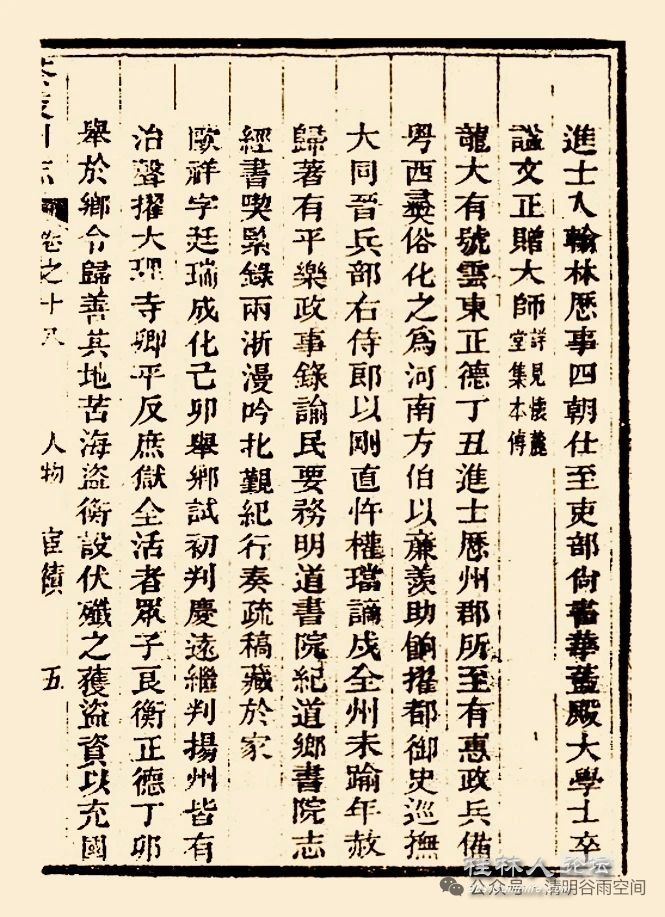 進士入翰林歷事四朝仕至吏部尚書華蓋殿大學士卒
謚文正贈大師詳見懷麓堂集本傳
龍大有號雲東正德丁丑進士歷州郡所至有惠政兵備
粤西彛俗化之爲河南方伯以廉羨助餉擢都御史巡撫
大同晉兵部右侍郎以剛直忤權璫謫戍全州未踰年赦
歸著有平樂政事錄諭民要務明道書院紀道鄉書院志
經書喫緊錄兩浙漫吟北覲紀行奏疏稿藏於家
歐祥字廷瑞成化己卯舉鄉試初判慶遠繼判揚州皆有
治聲擢大理寺卿平反庶獄全活者眾子良衡正德丁卯
舉於鄉令歸善其地苦海盜衡設伏殲之獲盜資以充國
茶陵州志 卷之十八 人物 宦績 五
桂林人论坛
公众号 清明谷雨空间